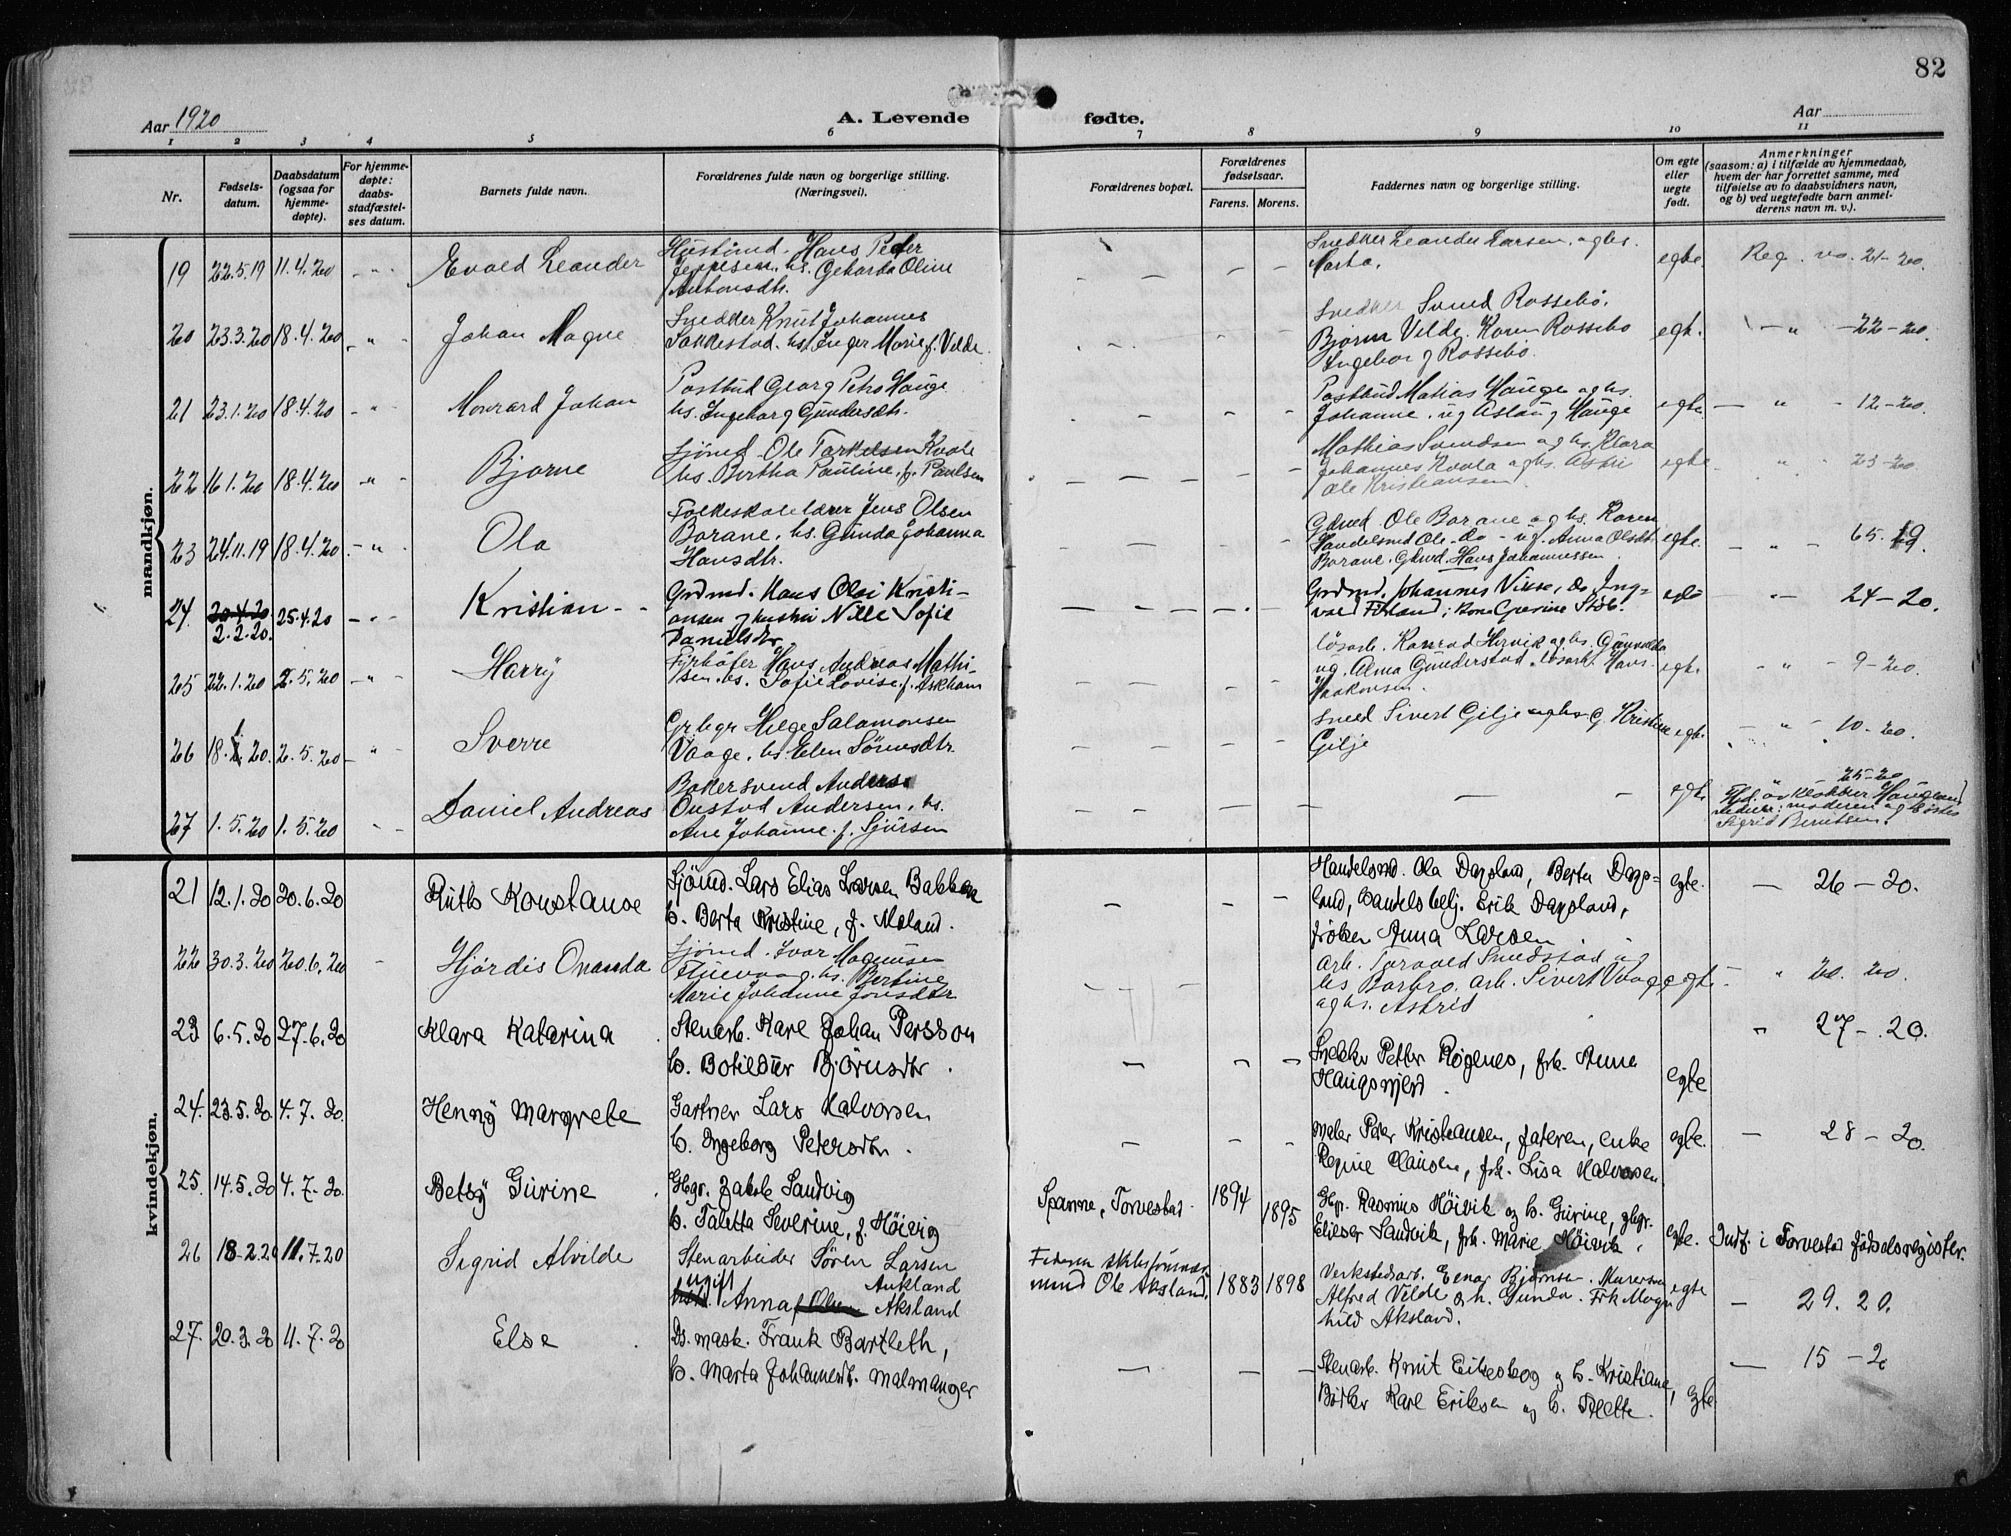 82
Aar 1920
A. Levende fødte.
Aar
1 2 3 4 5 6 7 8 9 10 11
Nr.
Fødsels-
datum.
Daabsdatum
(ogsaa for
hjemme-
døpte).
For hjemme-
døpte:
daabs-
stadfæstel-
ses datum.
Barnets fulde navn.
Forældrenes fulde navn og borgerlige stilling.
(Næringsvei).
Forældrenes bopæl.
Forældrenes
fødselsaar.
Farens. Morens.
Faddernes navn og borgerlige stilling.
Om egte
eller
uegte
født.
Anmerkninger
(saasom: a) i tilfælde av hjemmedaab,
hvem der har forrettet samme, med
tilføielse av to daabsvidners navn,
og b) ved uegtefødte barn anmel-
derens navn m. v.).
mandkjøn.
19 22.5.19 11.4.20 - " - Evald Leander
Hans Peder
Jeppesen. hs. Geharda Oline
Antonsdtr.
Snedker Leander Larsen. og hs.
Marta.
egte. Reg. no. 21-20.
20 23.3.20 18.4.20 - " - Johan Magne
Snedker Knut Johannes
Sakkestad. hs. Inger Marie f. Velde.
Snedker Svend Rossebø.
Bjarne Velde. Karen Rossebø
Ingeborg Rossebø.
egte. - " - 22-20.
21 23.1.20 18.4.20 - " - Monrard Johan
Postbud Georg Petro Hauge
hs. Ingeborg Gundersdtr.
Postbud Matias Hauge og hs.
Johanne. ug Aslaug Hauge
egte. - " - 12-20.
22 16.1.20 18.4.20 - " - Bjarne
Sjømd. Ole Torkelsen Kvale
hs. Bertha Pauline. f. Paulsen
Mathias Svendsen og hs. Klara
Johannes Kvala og hs.
Ole Kristiansen.
egte. " 23-20
23 24.11.19 18.4.20 - " - Ola
Folkeskolelærer Jens Olsen
Borane. hs. Gunda Johanna
Hansdtr.
Gdmd. Ole Borane og hs. Karen
Handelsmd Ole do - ug. Anna Olsdtr
Borane. Gdmd. Hans Johannessen.
egte. - " - 65.19.
24 20.4.20 2.2.20. 25.4.20 - " - Kristian
Grdmd. Hans Olai Kristi-
ansen og hustru Nille Sofie
Danielsdtr.
Grdmd. Johannes do Ing-
vald
egte - " - 24-20.
25 22.1.20 2.5.20 - " - Harry
Fyrbøter Hans Andreas Mathi-
sen. hs. Sofie Lovise. f. Askham
løsarb. Konrad Hervik og hs. Gunvalda
ug. Alma Gunderstad. løsarb. Hans
Haakonsen.
egte. " - 9-20.
26 18.1.20. 2.5.20 - " - Sverre
Gr.bgr Helge Salamonsen
Vaage. hs. Elen Sørinsdtr.
Smed Sivert Gilje og hs. G. Kristine
Gilje
egte. - " - 10-20.
27 1.5.20 1.5.20 - - Daniel Andreas
Bakersvend Andreas
Onstad Andersen. hs.
Ane Johanne. f. Sjursen
egte
25-20
Hjd. av klokker Haugland
vidner: moderen og
Sigrid Berntsen.
kvindekjøn.
21 12.1.20 20.6.20 Ruth Konstanse
Sjömd. Lars Elias Larsen Bakken
h. Berta Kristine, f. Moland.
Handelsmd. Ola Dagsland, Berta Dags-
land, handelsbetj. Erik Dagsland,
frøken Anna Larsen
egte. - 26-20.
22 30.3.20 20.6.20 - Hjørdis Onanda
Sjømd. Ivar Magnusen
hs. Bertine
Marie Johanne Jonsdtr
arb. Torvald Sundstad og
hs Barbro. arb. Sivert Vaage
og hs. Astrid
egte - " 20.20.
23 6.5.20 27.6.20 Klara Katarina
Stenarb. Karl Johan Persson
h. Botildur Björnsdtr.
Snekker Petter Røgenes, frk. Anna
Haugsgjerd.
egte " 27-20.
24. 23.5.20 4.7.20. Henny Margrete
Gartner Lars Halvorsen
h. Ingeborg Petersdtr.
Maler Peter Kristiansen, faderen, enke
Regine Clausen, frk. Lisa Halvorsen
egte. - 28-20.
25. 14.5.20 4.7.20. Betsy Gurine
Gbgr. Jakob Sandvig
h. Taletta Severine, f. Höivig
Spanne, Torvestad. 1894 1895
Gbgr. Rasmus Höivik og h. Gurine, gbgr.
Elieser Sandvik, frk. Marie Höivik.
egte. Indf. i Torvestad fødselsregister.
26 18-2.20 11.7.20 Sigrid Alvilde
Stenarbeider Søren Larsen
Aukland
ugift Anna f. Olsen Aksland
mand Ole Aksland. 1883 1898
Verkstedsarb. Einar Bjørnsen. Murersv
Alfred Velde og h. Gunda. Frk Magn
hild Aksland.
egte - 29.20.
27. 20.3.20 11.7.20 Else
Ds. mask. Frank Bartleth,
h. Marta Johannesdtr. Malmanger
Stenarb. Knut Eikeskog og h. Kristiane,
Bödker Karl Eriksen og h. Talette.
egte. - 15-20